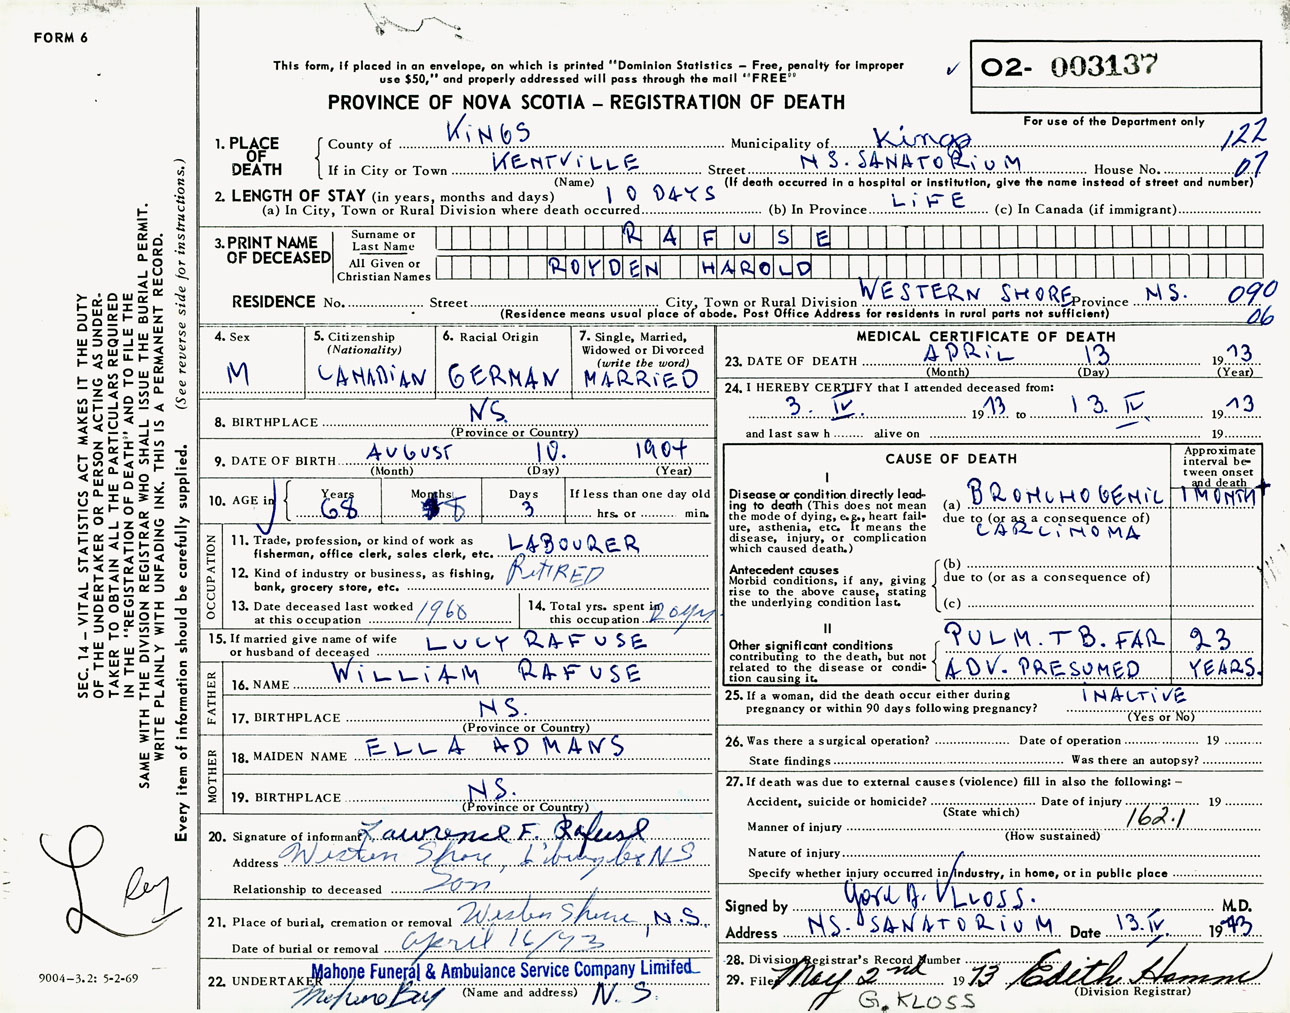 FORM 6
This form, if placed in an envelope, on which is printed "Dominion Statistics – Free, penalty for improper
use $50," and properly addressed will pass through the mail "FREE"
PROVINCE OF NOVA SCOTIA – REGISTRATION OF DEATH
02- 003137
For use of the Department only
1. PLACE OF DEATH
County of KINGS Municipality of Kings 122
If in City or Town KENTVILLE Street N.S. SANATORIUM House No. 07
(Name) (If death occurred in a hospital or institution, give the name instead of street and number)
2. LENGTH OF STAY (in years, months and days) 10 DAYS LIFE
(a) In City, Town or Rural Division where death occurred (b) In Province (c) In Canada (if immigrant)
3. PRINT NAME OF DECEASED
Surname or Last Name RAFUSE
All Given or Christian Names ROYDEN HAROLD
RESIDENCE No. Street City, Town or Rural Division WESTERN SHORE Province NS. 090
(Residence means usual place of abode. Post Office Address for residents in rural parts not sufficient) 06
4. Sex
M
5. Citizenship
(Nationality)
CANADIAN
6. Racial Origin
GERMAN
7. Single, Married,
Widowed or Divorced
(write the word)
MARRIED
8. BIRTHPLACE NS.
(Province or Country)
9. DATE OF BIRTH AUGUST 10. 1904
(Month) (Day) (Year)
10. AGE in Years Months Days If less than one day old
68 8 3 hrs. or min.
OCCUPATION
11. Trade, profession, or kind of work as
fisherman, office clerk, sales clerk, etc. LABOURER
12. Kind of industry or business, as fishing,
bank, grocery store, etc. RETIRED
13. Date deceased last worked
at this occupation 1960
14. Total yrs. spent in
this occupation 20 yrs
15. If married give name of wife
or husband of deceased LUCY RAFUSE
FATHER
16. NAME WILLIAM RAFUSE
17. BIRTHPLACE NS.
(Province or Country)
MOTHER
18. MAIDEN NAME ELLA ADMANS
19. BIRTHPLACE NS.
(Province or Country)
20. Signature of informant Lawrence F. Rafuse
Address Western Shore, NS
Relationship to deceased Son
21. Place of burial, cremation or removal Western Shore, N.S.
Date of burial or removal April 16/73
22. UNDERTAKER Mahone Funeral & Ambulance Service Company Limited
Mahone Bay (Name and address) N.S.
MEDICAL CERTIFICATE OF DEATH
23. DATE OF DEATH APRIL 13 1973
(Month) (Day) (Year)
24. I HEREBY CERTIFY that I attended deceased from:
3. IV. 1973 to 13. IV 1973
and last saw h alive on 19
CAUSE OF DEATH
Approximate
interval be-
tween onset
and death
I
Disease or condition directly lead-
ing to death (This does not mean
the mode of dying, e.g., heart fail-
ure, asthenia, etc. It means the
disease, injury, or complication
which caused death.)
(a) BRONCHOGENIC 1 MONTH +
due to (or as a consequence of)
CARCINOMA
Antecedent causes
Morbid conditions, if any, giving
rise to the above cause, stating
the underlying condition last.
(b)
due to (or as a consequence of)
(c)
II
Other significant conditions
contributing to the death, but not
related to the disease or condi-
tion causing it.
PULM. TB. FAR 23
ADV. PRESUMED YEARS.
25. If a woman, did the death occur either during
pregnancy or within 90 days following pregnancy? INACTIVE
(Yes or No)
26. Was there a surgical operation? Date of operation 19
State findings Was there an autopsy?
27. If death was due to external causes (violence) fill in also the following: –
Accident, suicide or homicide? Date of injury 19
(State which)
Manner of injury 162.1
(How sustained)
Nature of injury
Specify whether injury occurred in Industry, in home, or in public place
Signed by KLOSS. M.D.
Address NS. SANATORIUM Date 13. IV. 1973
28. Division Registrar's Record Number
29. Filed May 2nd 1973 Edith
(Division Registrar)
G. KLOSS
SEC. 14 – VITAL STATISTICS ACT MAKES IT THE DUTY
OF THE UNDERTAKER OR PERSON ACTING AS UNDER-
TAKER TO OBTAIN ALL THE PARTICULARS REQUIRED
IN THE "REGISTRATION OF DEATH" AND TO FILE THE
SAME WITH THE DIVISION REGISTRAR WHO SHALL ISSUE THE BURIAL PERMIT.
WRITE PLAINLY WITH UNFADING INK. THIS IS A PERMANENT RECORD.
Every item of information should be carefully supplied. (See reverse side for instructions.)
9004-3.2: 5-2-69